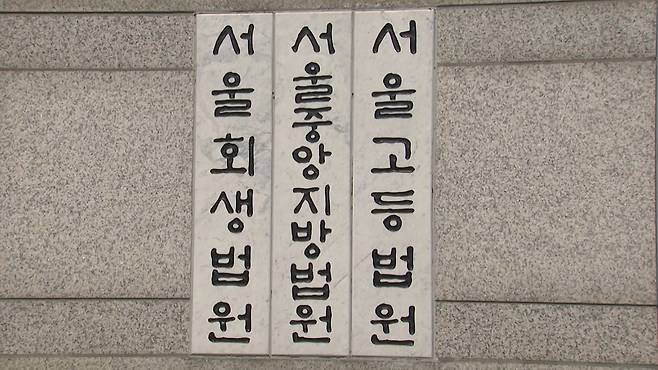 서울고등법원
서울중앙지방법원
서울회생법원